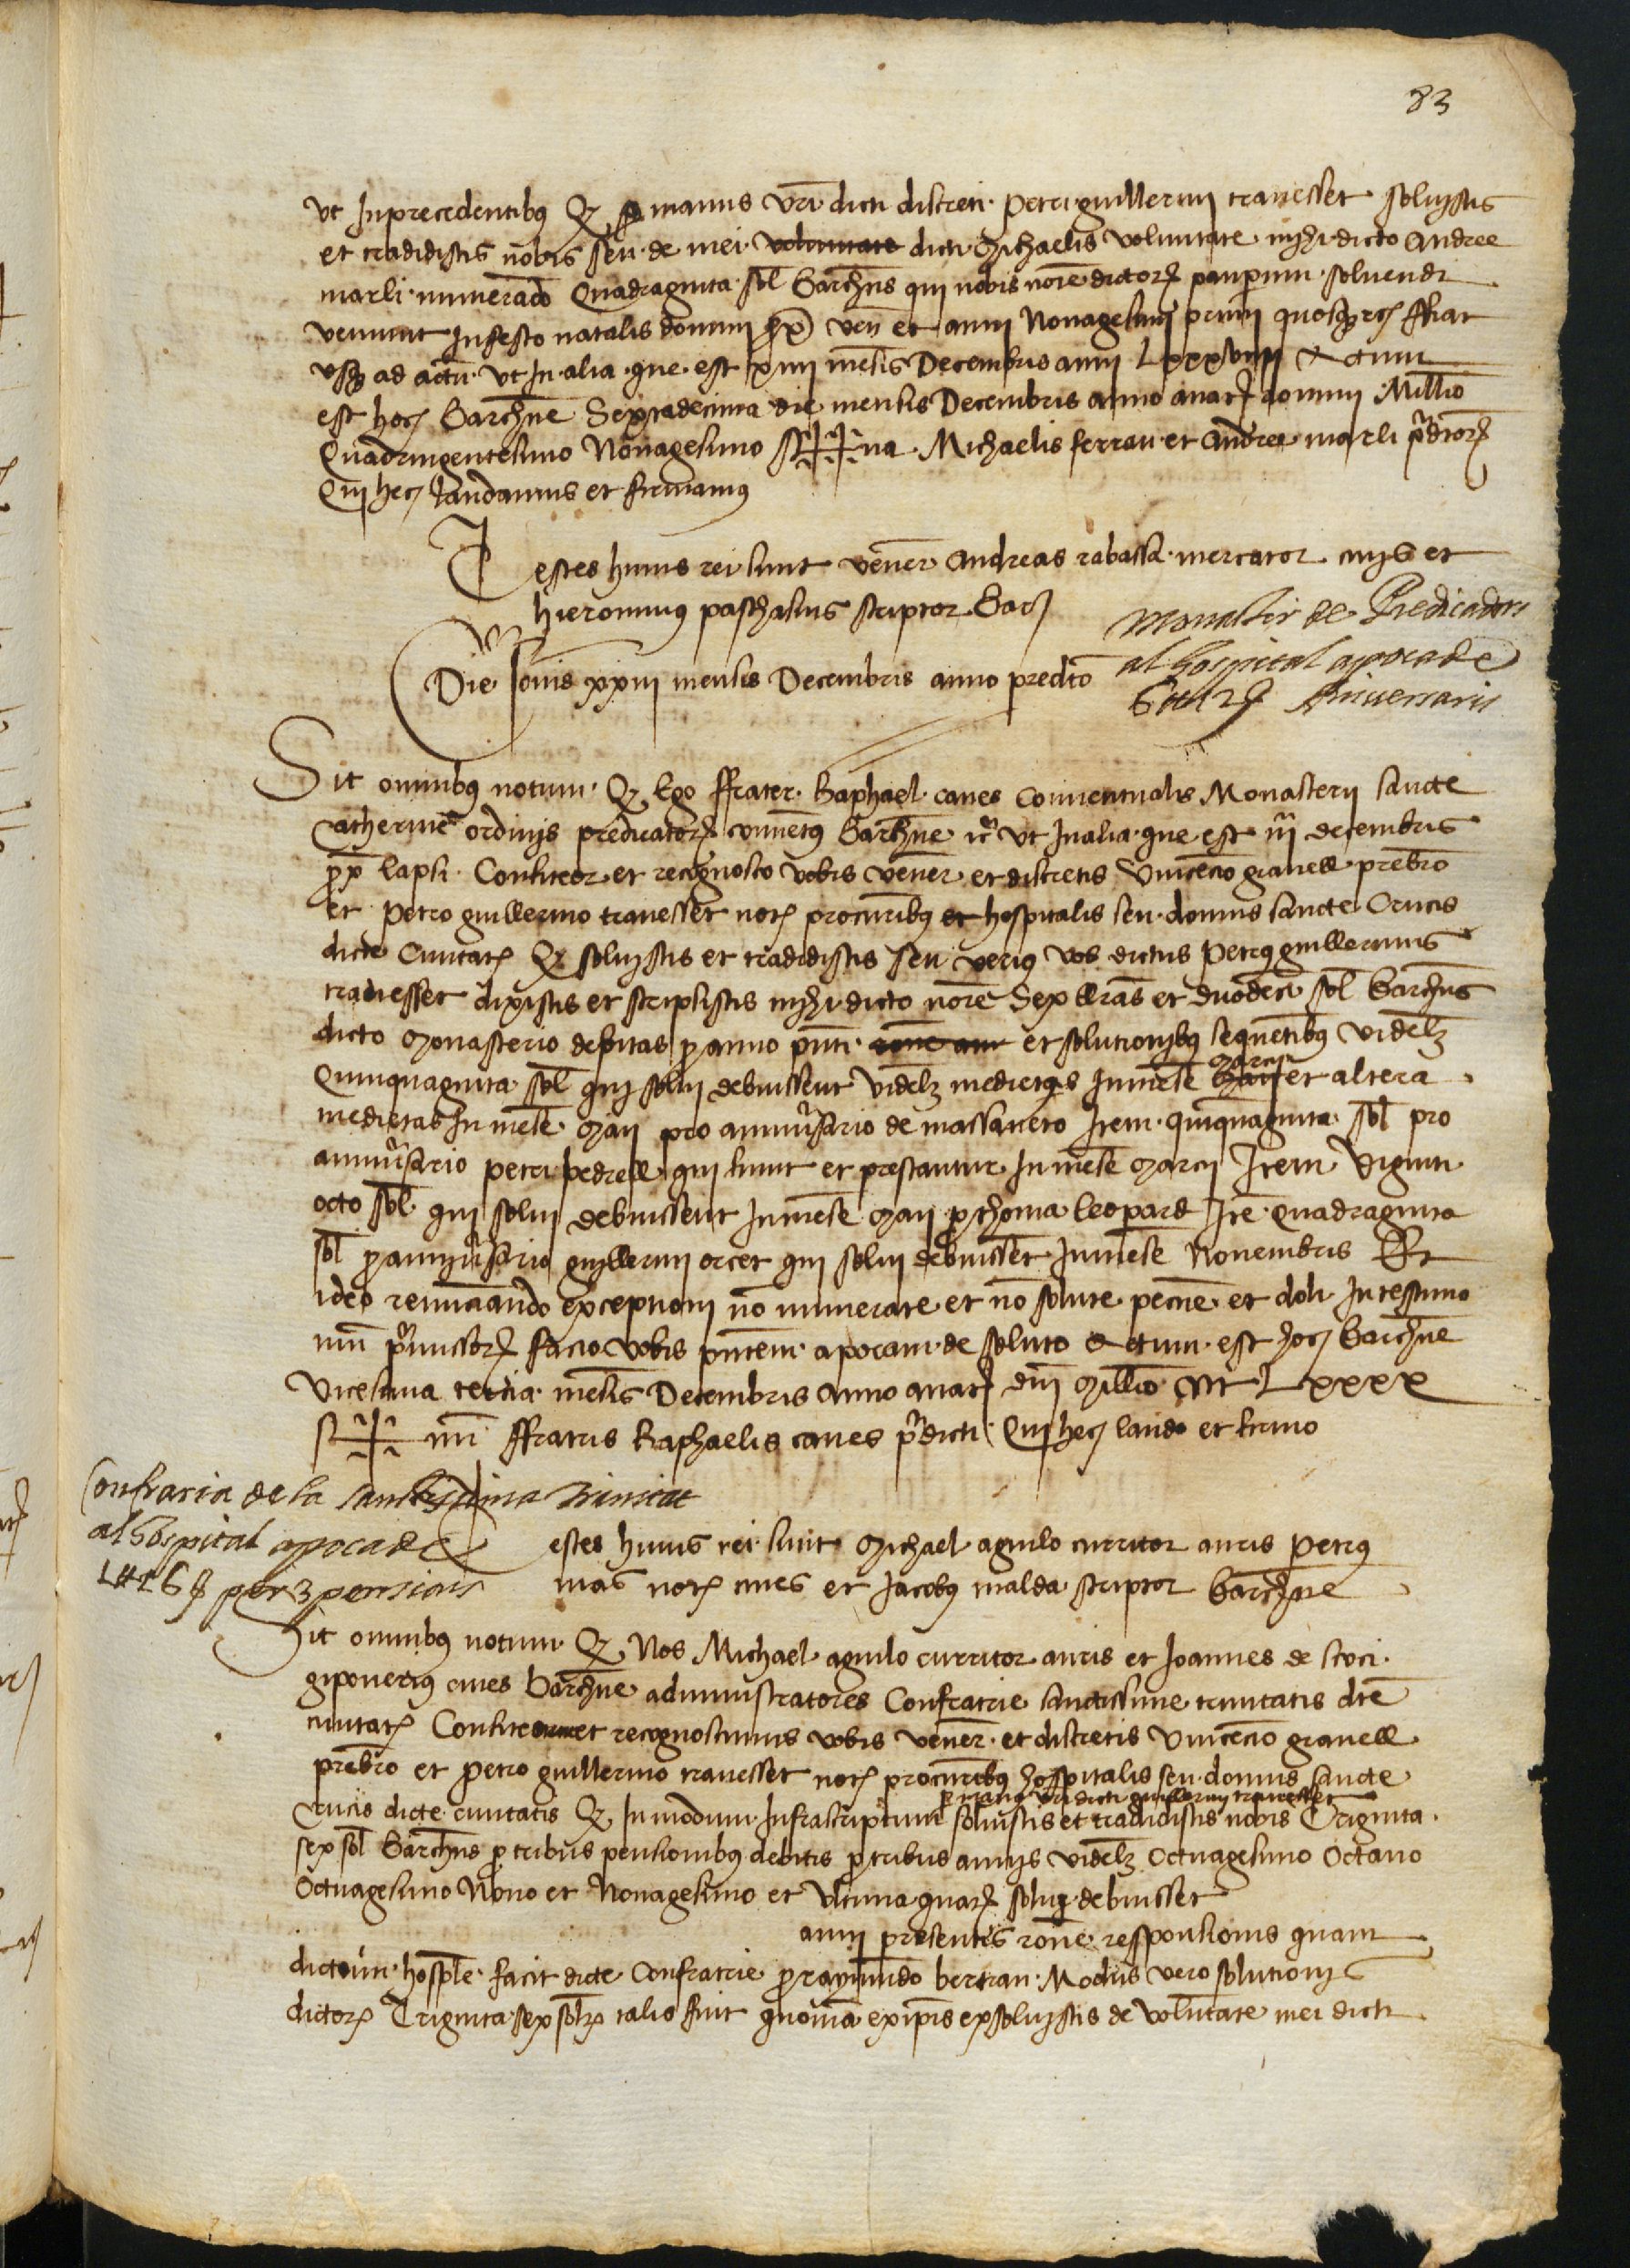 83
vt Inprecedentibus Q manus vri dicti discreti Petri guillermi trauesset soluistis
et tradidistis nobis seu de mei voluntate dicti Michaelis voluntate mihi dicto Andree
marli numerado Quadraginta sol Barchns qui nobis noie dictor pauperum soluendi
veniunt In festo natalis domini prox ven et anni Nonagesimi primi Fiat
vsq ad actu vt In alia que est xiiii mesis Decembris anni Lxxxviiii Actum
est hoc Barchne Sextadecima die mensis Decembris anno a nat domini Millio
Quadringentesimo Nonagesimo S++na Michaelis ferran et Andree marli pdictor
Qui hec laudamus et firmamus
Testes huius rei sunt vener Andreas rabassa mercator ciuis et
hieronimus paschasius scriptor Bar
Monastir de Predicadors
al hospital apoca de
6 ₶ 12 ſ Aniversaris
Die Iouis xxiii mensis Decembris anno predto
Sit omnibus notum Q Ego ffrater Raphael canes Conuentualis Monasterii sancte
Catherine ordinis predicator conuetus Barchne ic vt In alia que est iii decembris
prox lapsi Confiteor et recognosco vobis vener et discretis Vincencio grauell prebro
et Petro guillermo trauesset not procuribus et hospitalis seu domus sancte Crucis
dicte Ciuitat Q soluistis et tradidistis seu verius vos dictus Petrus guillermus
trauesset dixistis et scripsistis mihi dicto noie Sex llras et duodeci sol Barchns
dicto Monasterio debitas p anno pnti et solutionibus sequetibus videlz
Quinquaginta sol qui solui debuissent videlz medietas In mese Marcii et altera
medietas In mese Maii pro anniusario de massaneto Item quiquaginta sol pro
anniusario petri pedrell qui sunt et prestantur In mese Marcii Item Viginti
octo sol qui solui debuissent In mese Maii p thoma leopard Ite quadraginta
sol p anniusario guillermi orcet qui solui debuisset In mese Nouembris Et
ideo renuciando exceptioni no numerate et no solute pecune et doli In testimo
niu pmissor facio vobis pntem apocam de soluto Actum est hoc Barchne
Vicesima tertia mesis Decembris anno a nat dni Millio CCCC Lxxxx
S+nu ffratris Raphaelis canes pdicti Qui hec laudo et firmo
Confraria de la santissima trinitat
al hospital apoca de
1 ₶ 16 ſ per 3 pensions
Testes huius rei sunt Michael aguilo curritor auris Petrus
mas not ciues et Jacobus malda scriptor Barchne
Sit omnibus notum Q Nos Michael aguilo curritor auris et Ioannes de
giponerius ciues Barchne administratores Confratrie sanctissime trinitatis dte
ciuitat Confitemur et recognoscimus vobis vener et discretis Vincencio grauell
prebro et Petro guillermo trauesset not procuribus hospitalis seu domus sancte
Crucis dicte ciuitatis Q In modum Infrascriptum p manu vri dicti guillermi trauesset soluistis et tradidistis nobis Triginta
sex sol Barchns p tribus pensionibus debitis p tribus annis videlz Octuagesimo Octauo
Octuagesimo Nono et Nonagesimo et vltima quar solui debuisset
anni presentis rone responsionis quam
dictum hosple facit dicte Confratrie p raymundo bertran Modus vero solutionis
dictor Triginta sex sol talis fuit quoniam ex ipis exsoluistis de voluntate mei dicti